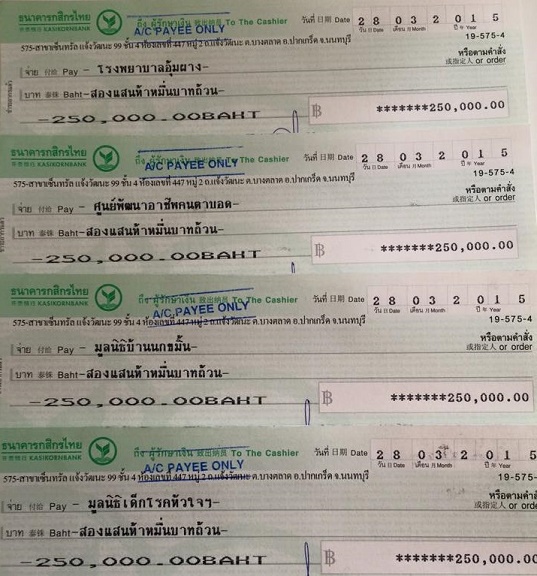 ธนาคารกสิกรไทย
泰華銀行 KASIKORNBANK
ถึง ผู้รักษาเงิน 致出納員 To The Cashier
A/C PAYEE ONLY
วันที่ 日期 Date 28 03 2015
วัน 日 Date เดือน 月 Month ปี 年 Year
575-สาขาเซ็นทรัล แจ้งวัฒนะ 99 ชั้น 4 ห้องเลขที่ 447 หมู่ 2 ถ.แจ้งวัฒนะ ต.บางตลาด อ.ปากเกร็ด จ.นนทบุรี
19-575-4
จ่าย 付給 Pay - โรงพยาบาลอุ้มผาง-
หรือตามคำสั่ง
或指定人 or order
บาท 泰銖 Baht-สองแสนห้าหมื่นบาทถ้วน-
-250,000.00BAHT
฿ *******250,000.00
ธนาคารกสิกรไทย
泰華銀行 KASIKORNBANK
ถึง ผู้รักษาเงิน 致出納員 To The Cashier
A/C PAYEE ONLY
วันที่ 日期 Date 28 03 2015
วัน 日 Date เดือน 月 Month ปี 年 Year
575-สาขาเซ็นทรัล แจ้งวัฒนะ 99 ชั้น 4 ห้องเลขที่ 447 หมู่ 2 ถ.แจ้งวัฒนะ ต.บางตลาด อ.ปากเกร็ด จ.นนทบุรี
19-575-4
จ่าย 付給 Pay - ศูนย์พัฒนาอาชีพคนตาบอด-
หรือตามคำสั่ง
或指定人 or order
บาท 泰銖 Baht-สองแสนห้าหมื่นบาทถ้วน-
-250,000.00BAHT
฿ *******250,000.00
ธนาคารกสิกรไทย
泰華銀行 KASIKORNBANK
ถึง ผู้รักษาเงิน 致出納員 To The Cashier
A/C PAYEE ONLY
วันที่ 日期 Date 28 03 2015
วัน 日 Date เดือน 月 Month ปี 年 Year
575-สาขาเซ็นทรัล แจ้งวัฒนะ 99 ชั้น 4 ห้องเลขที่ 447 หมู่ 2 ถ.แจ้งวัฒนะ ต.บางตลาด อ.ปากเกร็ด จ.นนทบุรี
19-575-4
จ่าย 付給 Pay - มูลนิธิบ้านนกขมิ้น-
หรือตามคำสั่ง
或指定人 or order
บาท 泰銖 Baht-สองแสนห้าหมื่นบาทถ้วน-
-250,000.00BAHT
฿ *******250,000.00
ธนาคารกสิกรไทย
泰華銀行 KASIKORNBANK
ถึง ผู้รักษาเงิน 致出納員 To The Cashier
A/C PAYEE ONLY
วันที่ 日期 Date 28 03 2015
วัน 日 Date เดือน 月 Month ปี 年 Year
575-สาขาเซ็นทรัล แจ้งวัฒนะ 99 ชั้น 4 ห้องเลขที่ 447 หมู่ 2 ถ.แจ้งวัฒนะ ต.บางตลาด อ.ปากเกร็ด จ.นนทบุรี
19-575-4
จ่าย 付給 Pay - มูลนิธิเด็กโรคหัวใจฯ-
หรือตามคำสั่ง
或指定人 or order
บาท 泰銖 Baht-สองแสนห้าหมื่นบาทถ้วน-
-250,000.00BAHT
฿ *******250,000.00